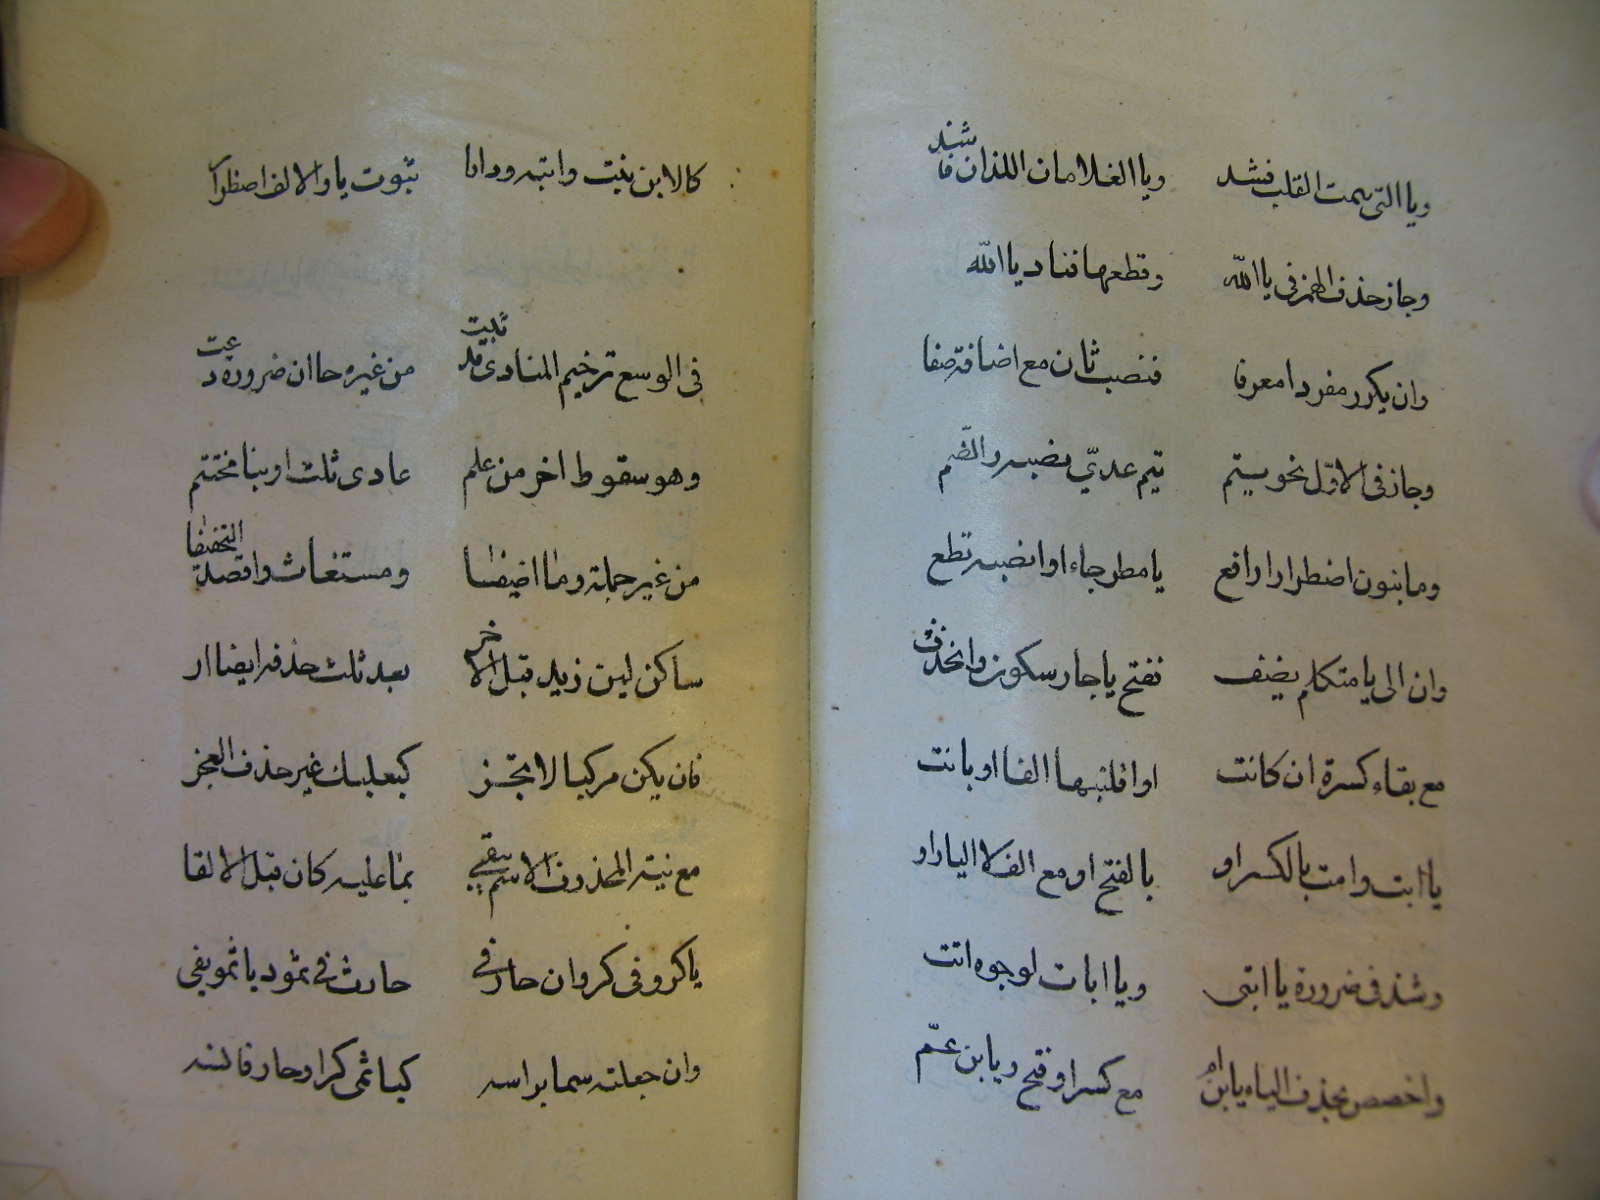 ويا التي تيمت القلب فشد ويا الغلامان اللذان فا شند
وجاز حذف الهمز في يا الله وقطعها فناد يا الله
وان يكرر مفردا معرفا فنصب ثان مع اضافة صفا
وجاز في الاول نحو يتيم تيم عديّ نصبه والضم
وما بنون اضطرارا وا فع يا مطر جاء او انصبه تطع
وان الى يا متكلم يضف ففتح يا جا وسكون وانحذف
مع بقاء كسرة ان كانت او اقلبنها الفا او بانت
يا ابت وامت بالكسر او بالفتح او مع الف لا اليا راو
وشذ في ضرورة يا ابتي ويا ابات لوجوه اتت
واخصص بحذف الياء يا ابن ام مع كسر او فتح ويا بن عمّ
كالابن بنت وابنه وداما ثبوت يا والالف اضطرارا
في الوسع ترخيم المنادى قد ثبت من غيره حا ان ضرورة دعت
وهو سقوط اخر من علم عادي ثلث او بتا مختتم
من غير جملة وما اضيفا ومستغاث واقصد التخفيفا
ساكن لين زيد قبل الاخر بعد ثلث حذفه ايضا ار
فان يكن مركبا لا تجز كبعلبك غير حذف العجز
مع نية المحذوف الاسم يبقي بما عليه كان قبل الالقا
يا كرو في كروان حار في حارث في ثمود يا ثمو يفي
وان جعلته سما براسه كيا ثمي كرا وحار فالسنه